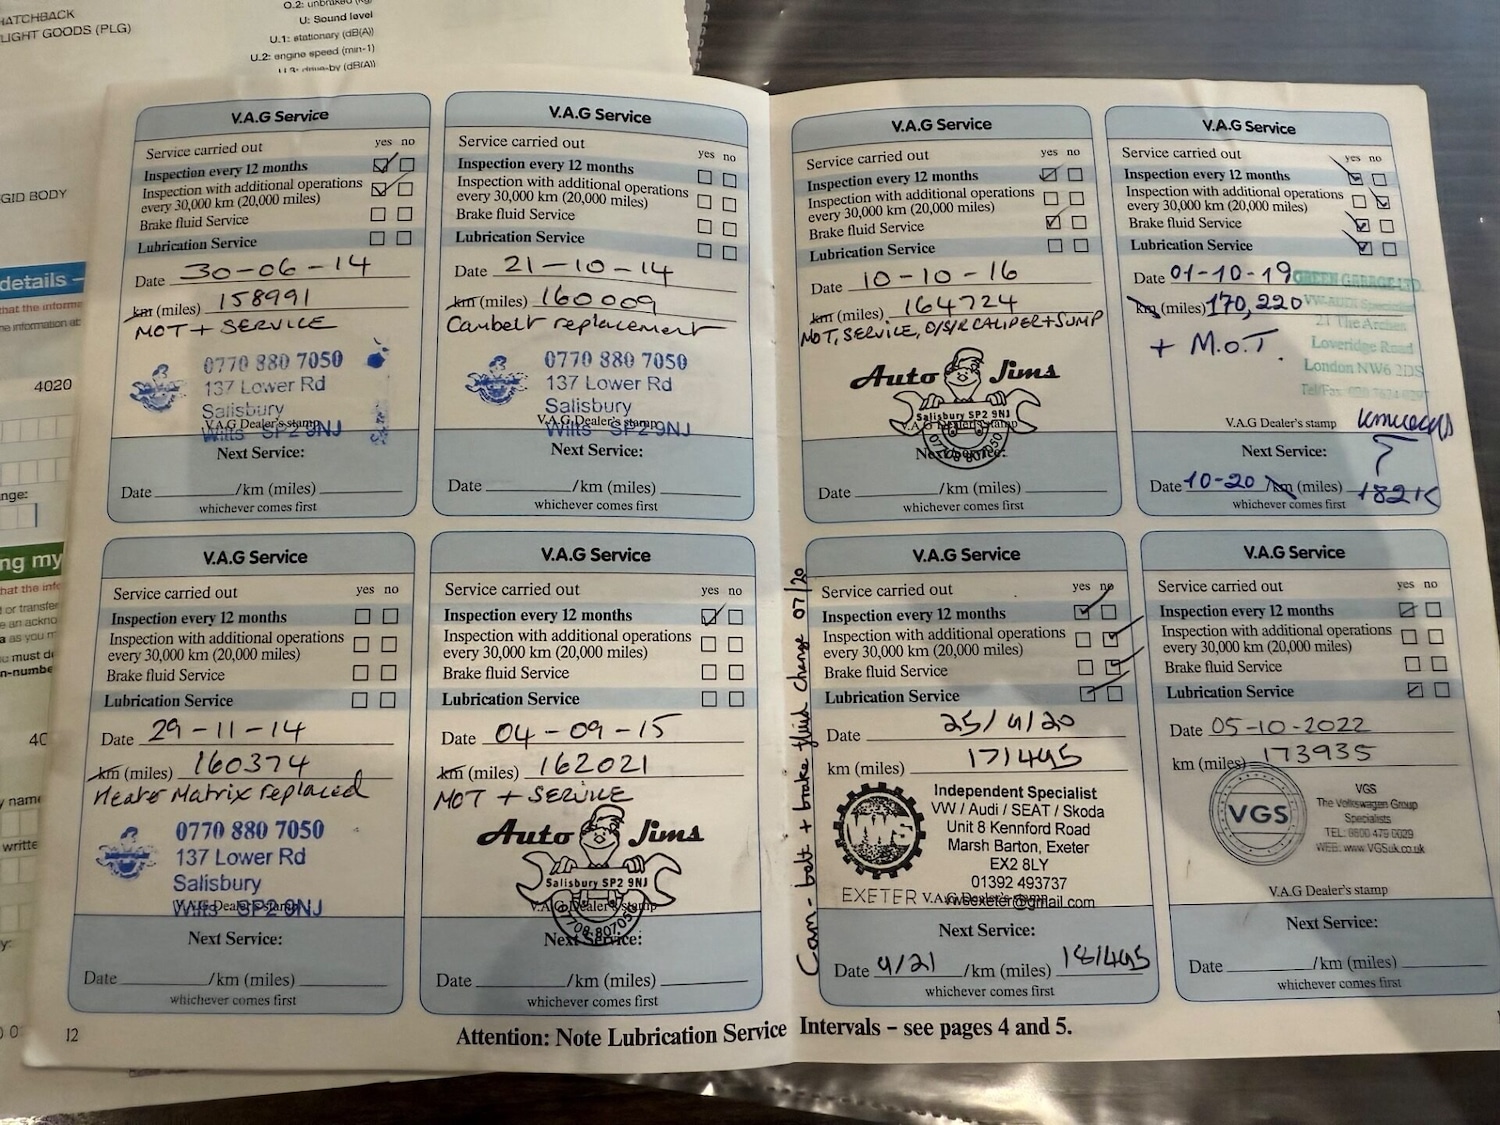 HATCHBACK
LIGHT GOODS (PLG)
O.2: unbraked (kg)
U: Sound level
U.1: stationary (dB(A))
U.2: engine speed (min-1)
U.3: drive-by (dB(A))
GID BODY
details –
that the informa
e information at
4020
nge:
ng my
that the info
or transfer
a as you m
u must de
n-numbe
40
y name
written
y:
V.A.G Service
Service carried out
yes no
Inspection every 12 months
Inspection with additional operations
every 30,000 km (20,000 miles)
Brake fluid Service
Lubrication Service
Date 30-06-14
km (miles) 158991
MOT + SERVICE
0770 880 7050
137 Lower Rd
Salisbury
Wilts SP2 9NJ
V.A.G Dealer's stamp
Next Service:
Date /km (miles)
whichever comes first
V.A.G Service
Service carried out
yes no
Inspection every 12 months
Inspection with additional operations
every 30,000 km (20,000 miles)
Brake fluid Service
Lubrication Service
Date 21-10-14
km (miles) 160009
Cambelt replacement
0770 880 7050
137 Lower Rd
Salisbury
V.A.G Dealer's stamp
Wilts SP2 9NJ
Next Service:
Date /km (miles)
whichever comes first
V.A.G Service
Service carried out
yes no
Inspection every 12 months
Inspection with additional operations
every 30,000 km (20,000 miles)
Brake fluid Service
Lubrication Service
Date 10-10-16
km (miles) 164724
MOT, SERVICE, O/S/R CALIPER + SUMP
Auto Jims
Salisbury SP2 9NJ
V.A.G Dealer's stamp
Next Service:
Date /km (miles)
whichever comes first
V.A.G Service
Service carried out
yes no
Inspection every 12 months
Inspection with additional operations
every 30,000 km (20,000 miles)
Brake fluid Service
Lubrication Service
Date 01-10-19
GREEN GARAGE LTD.
km (miles) 170,220
VW-AUDI Specialist
21 The Arches
+ M.O.T.
Loveridge Road
London NW6 2DS
Tel/Fax:
V.A.G Dealer's stamp
Next Service:
Date 10-20 /km (miles) 182K
whichever comes first
V.A.G Service
Service carried out
yes no
Inspection every 12 months
Inspection with additional operations
every 30,000 km (20,000 miles)
Brake fluid Service
Lubrication Service
Date 29-11-14
km (miles) 160374
Heater Matrix replaced
0770 880 7050
137 Lower Rd
Salisbury
V.A.G Dealer's stamp
Wilts SP2 9NJ
Next Service:
Date /km (miles)
whichever comes first
V.A.G Service
Service carried out
yes no
Inspection every 12 months
Inspection with additional operations
every 30,000 km (20,000 miles)
Brake fluid Service
Lubrication Service
Date 04-09-15
km (miles) 162021
MOT + SERVICE
Auto Jims
Salisbury SP2 9NJ
V.A.G Dealer's stamp
Next Service:
Date /km (miles)
whichever comes first
Cam-belt + brake fluid change 07/20
V.A.G Service
Service carried out
yes no
Inspection every 12 months
Inspection with additional operations
every 30,000 km (20,000 miles)
Brake fluid Service
Lubrication Service
Date 25/9/20
km (miles) 171495
Independent Specialist
VW / Audi / SEAT / Skoda
Unit 8 Kennford Road
Marsh Barton, Exeter
EX2 8LY
01392 493737
EXETER
V.A.G Dealer's stamp
Next Service:
Date 9/21 /km (miles) 181495
whichever comes first
V.A.G Service
Service carried out
yes no
Inspection every 12 months
Inspection with additional operations
every 30,000 km (20,000 miles)
Brake fluid Service
Lubrication Service
Date 05-10-2022
km (miles) 173935
VGS
VGS
The Volkswagen Group
Specialists
TEL: 0800 479 0029
WEB: www.VGSuk.co.uk
V.A.G Dealer's stamp
Next Service:
Date /km (miles)
whichever comes first
12
Attention: Note Lubrication Service Intervals – see pages 4 and 5.